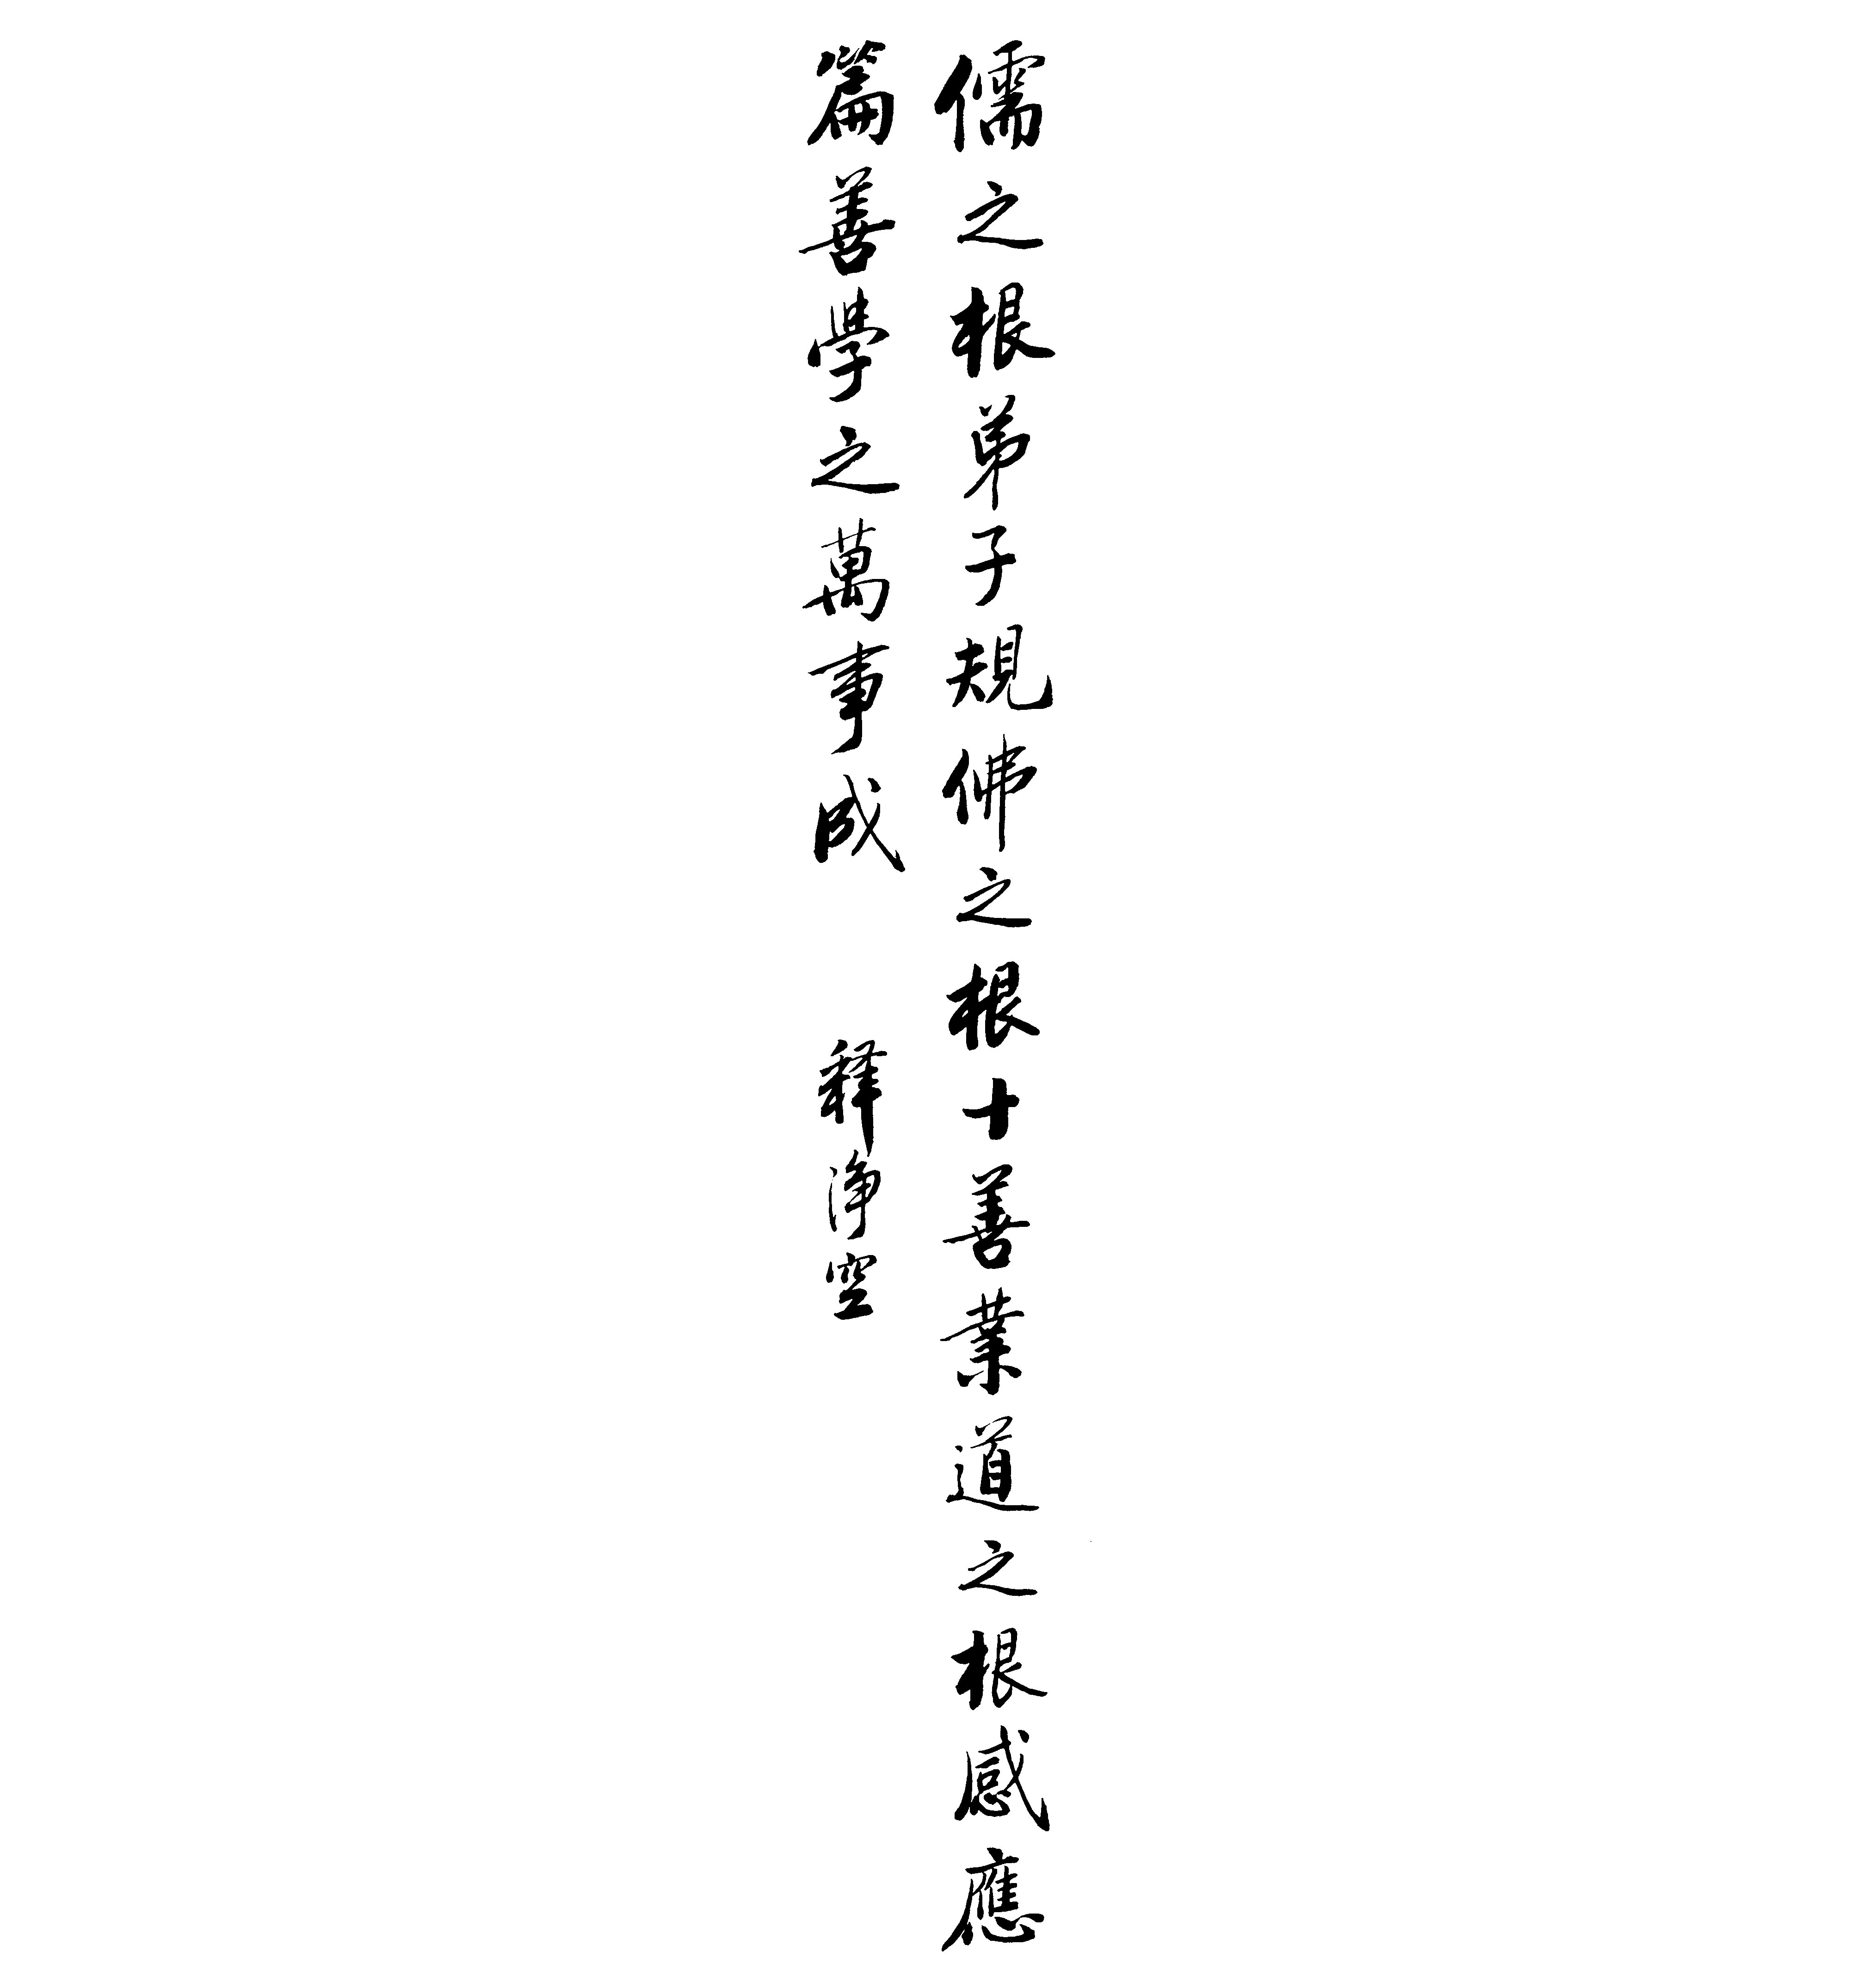 儒之根弟子規佛之根十善業道之根感應
篇善學之萬事成 釋淨空